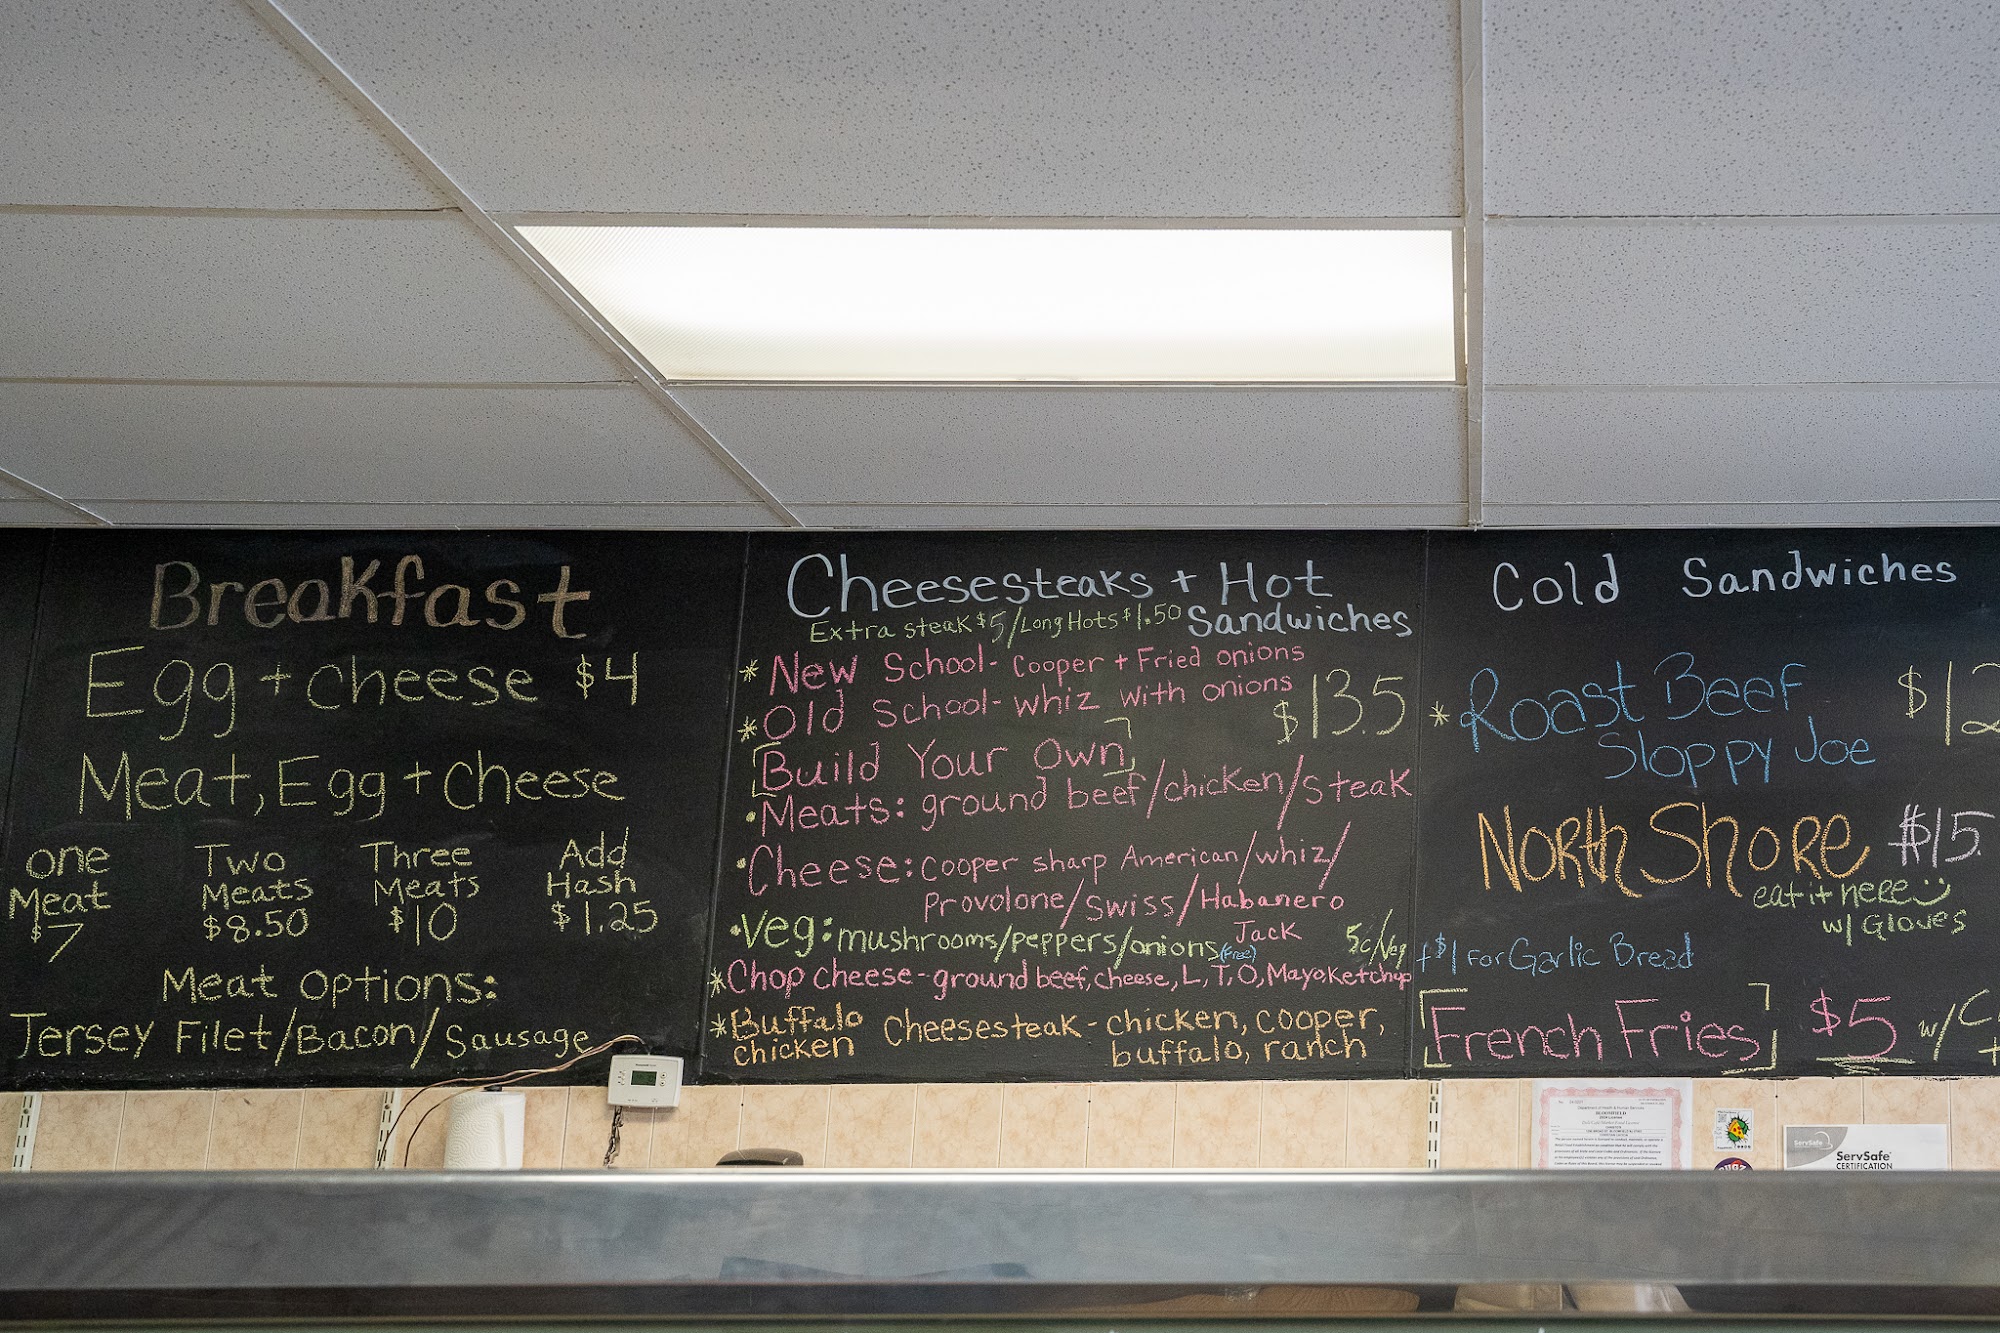 Breakfast
Egg + Cheese $4
Meat, Egg + Cheese
One Meat $7
Two Meats $8.50
Three Meats $10
Add Hash $1.25
Meat Options:
Jersey Filet/Bacon/Sausage
Cheesesteaks + Hot
Extra steak $5/Long Hots $1.50 Sandwiches
* New School- Cooper + Fried onions
* Old School- whiz with onions $13.5
[Build Your Own]
• Meats: ground beef/chicken/steak
• Cheese: cooper sharp American/whiz/
Provolone/Swiss/Habanero
Jack
• Veg: mushrooms/peppers/onions (free) 5c/Veg
* Chop cheese - ground beef, cheese, L, T, O, Mayo, Ketchup
* Buffalo chicken Cheesesteak - chicken, cooper,
buffalo, ranch
Cold Sandwiches
* Roast Beef $12
Sloppy Joe
North Shore $15.
eat it here
w/ Gloves
+$1 For Garlic Bread
[French Fries] $5 w/ C
ServSafe
ServSafe®
CERTIFICATION